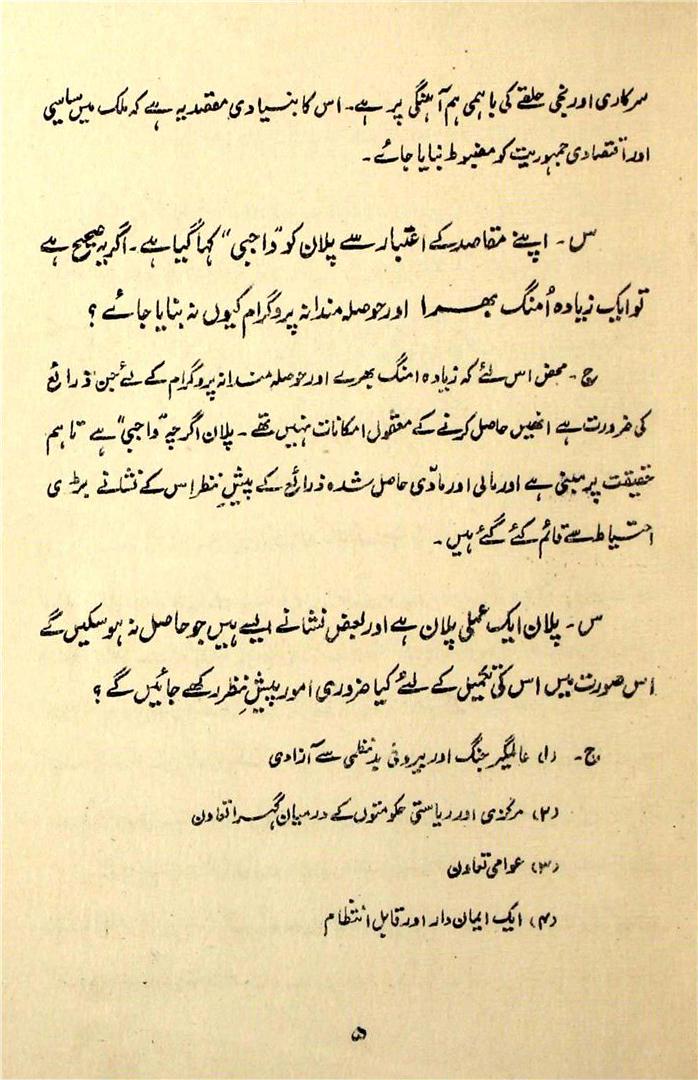 سرکاری اور نجی حلقے کی باہمی ہم آہنگی پر ہے۔ اس کا بنیادی مقصد یہ ہے کہ ملک میں سیاسی
اور اقتصادی جمہوریت کو مضبوط بنایا جائے۔
س۔ اپنے مقاصد کے اعتبار سے پلان کو "واجبی" کہا گیا ہے۔ اگر یہ صحیح ہے
تو ایک زیادہ اُمنگ بھرا اور حوصلہ مندانہ پروگرام کیوں نہ بنایا جائے؟
ج۔ محض اس لئے کہ زیادہ امنگ بھرے اور حوصلہ مندانہ پروگرام کے لئے جن ذرائع
کی ضرورت ہے انھیں حاصل کرنے کے معقول امکانات نہیں تھے۔ پلان اگرچہ "واجبی" ہے تاہم
حقیقت پر مبنی ہے اور مالی اور مادّی حاصل شدہ ذرائع کے پیشِ نظر اس کے نشانے بڑی
احتیاط سے قائم کئے گئے ہیں۔
س۔ پلان ایک عملی پلان ہے اور بعض نشانے ایسے ہیں جو حاصل نہ ہو سکیں گے
اس صورت میں اس کی تکمیل کے لئے کیا ضروری امور پیشِ نظر رکھے جائیں گے؟
ج۔ (۱) عالمگیر جنگ اور بیرونی بدنظمی سے آزادی
(۲) مرکزی اور ریاستی حکومتوں کے درمیان گہرا تعاون
(۳) عوامی تعاون
(۴) ایک ایمان دار اور قابل انتظام
۵